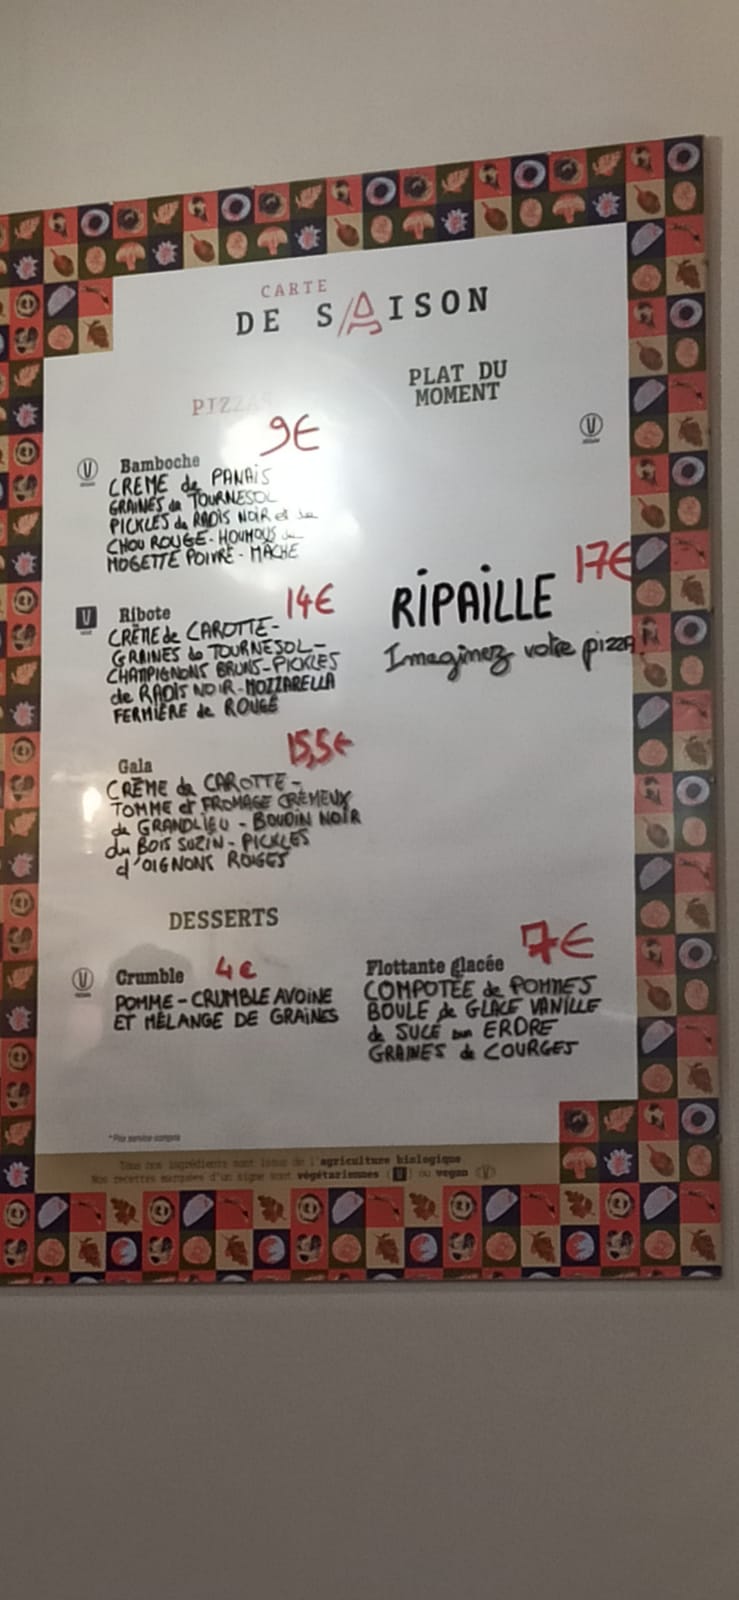 CARTE
DE SAISON
PLAT DU
MOMENT
PIZZAS
9€
V
Bamboche
CREME de PANAIS
GRAINES de TOURNESOL
PICKLES de RADIS NOIR et de
CHOU ROUGE - HOUMOUS de
MOGETTE POIVRE - MÂCHE
V
14€
V
Ribote
CRÈME de CAROTTE -
GRAINES de TOURNESOL -
CHAMPIGNONS BRUNS - PICKLES
de RADIS NOIR - MOZZARELLA
FERMIÈRE de ROUGÉ
17€
RiPAiLLE
Imaginez votre pizza!
15,5€
Gala
CRÈME de CAROTTE -
TOMME et FROMAGE CRÈMEUX
de GRANDLIEU - BOUDIN NOIR
du BOIS SUZIN - PICKLES
d'OIGNONS ROUGES
DESSERTS
V
Crumble 4€
POMME - CRUMBLE AVOINE
ET MÉLANGE DE GRAINES
7€
Flottante glacée
COMPOTÉE de POMMES
BOULE de GLACE VANILLE
de SUCÉ sur ERDRE
GRAINES de COURGES
*Prix service compris
Tous nos ingrédients sont issus de l'agriculture biologique
Nos recettes marquées d'un signe sont végétariennes (V) ou vegan (V)